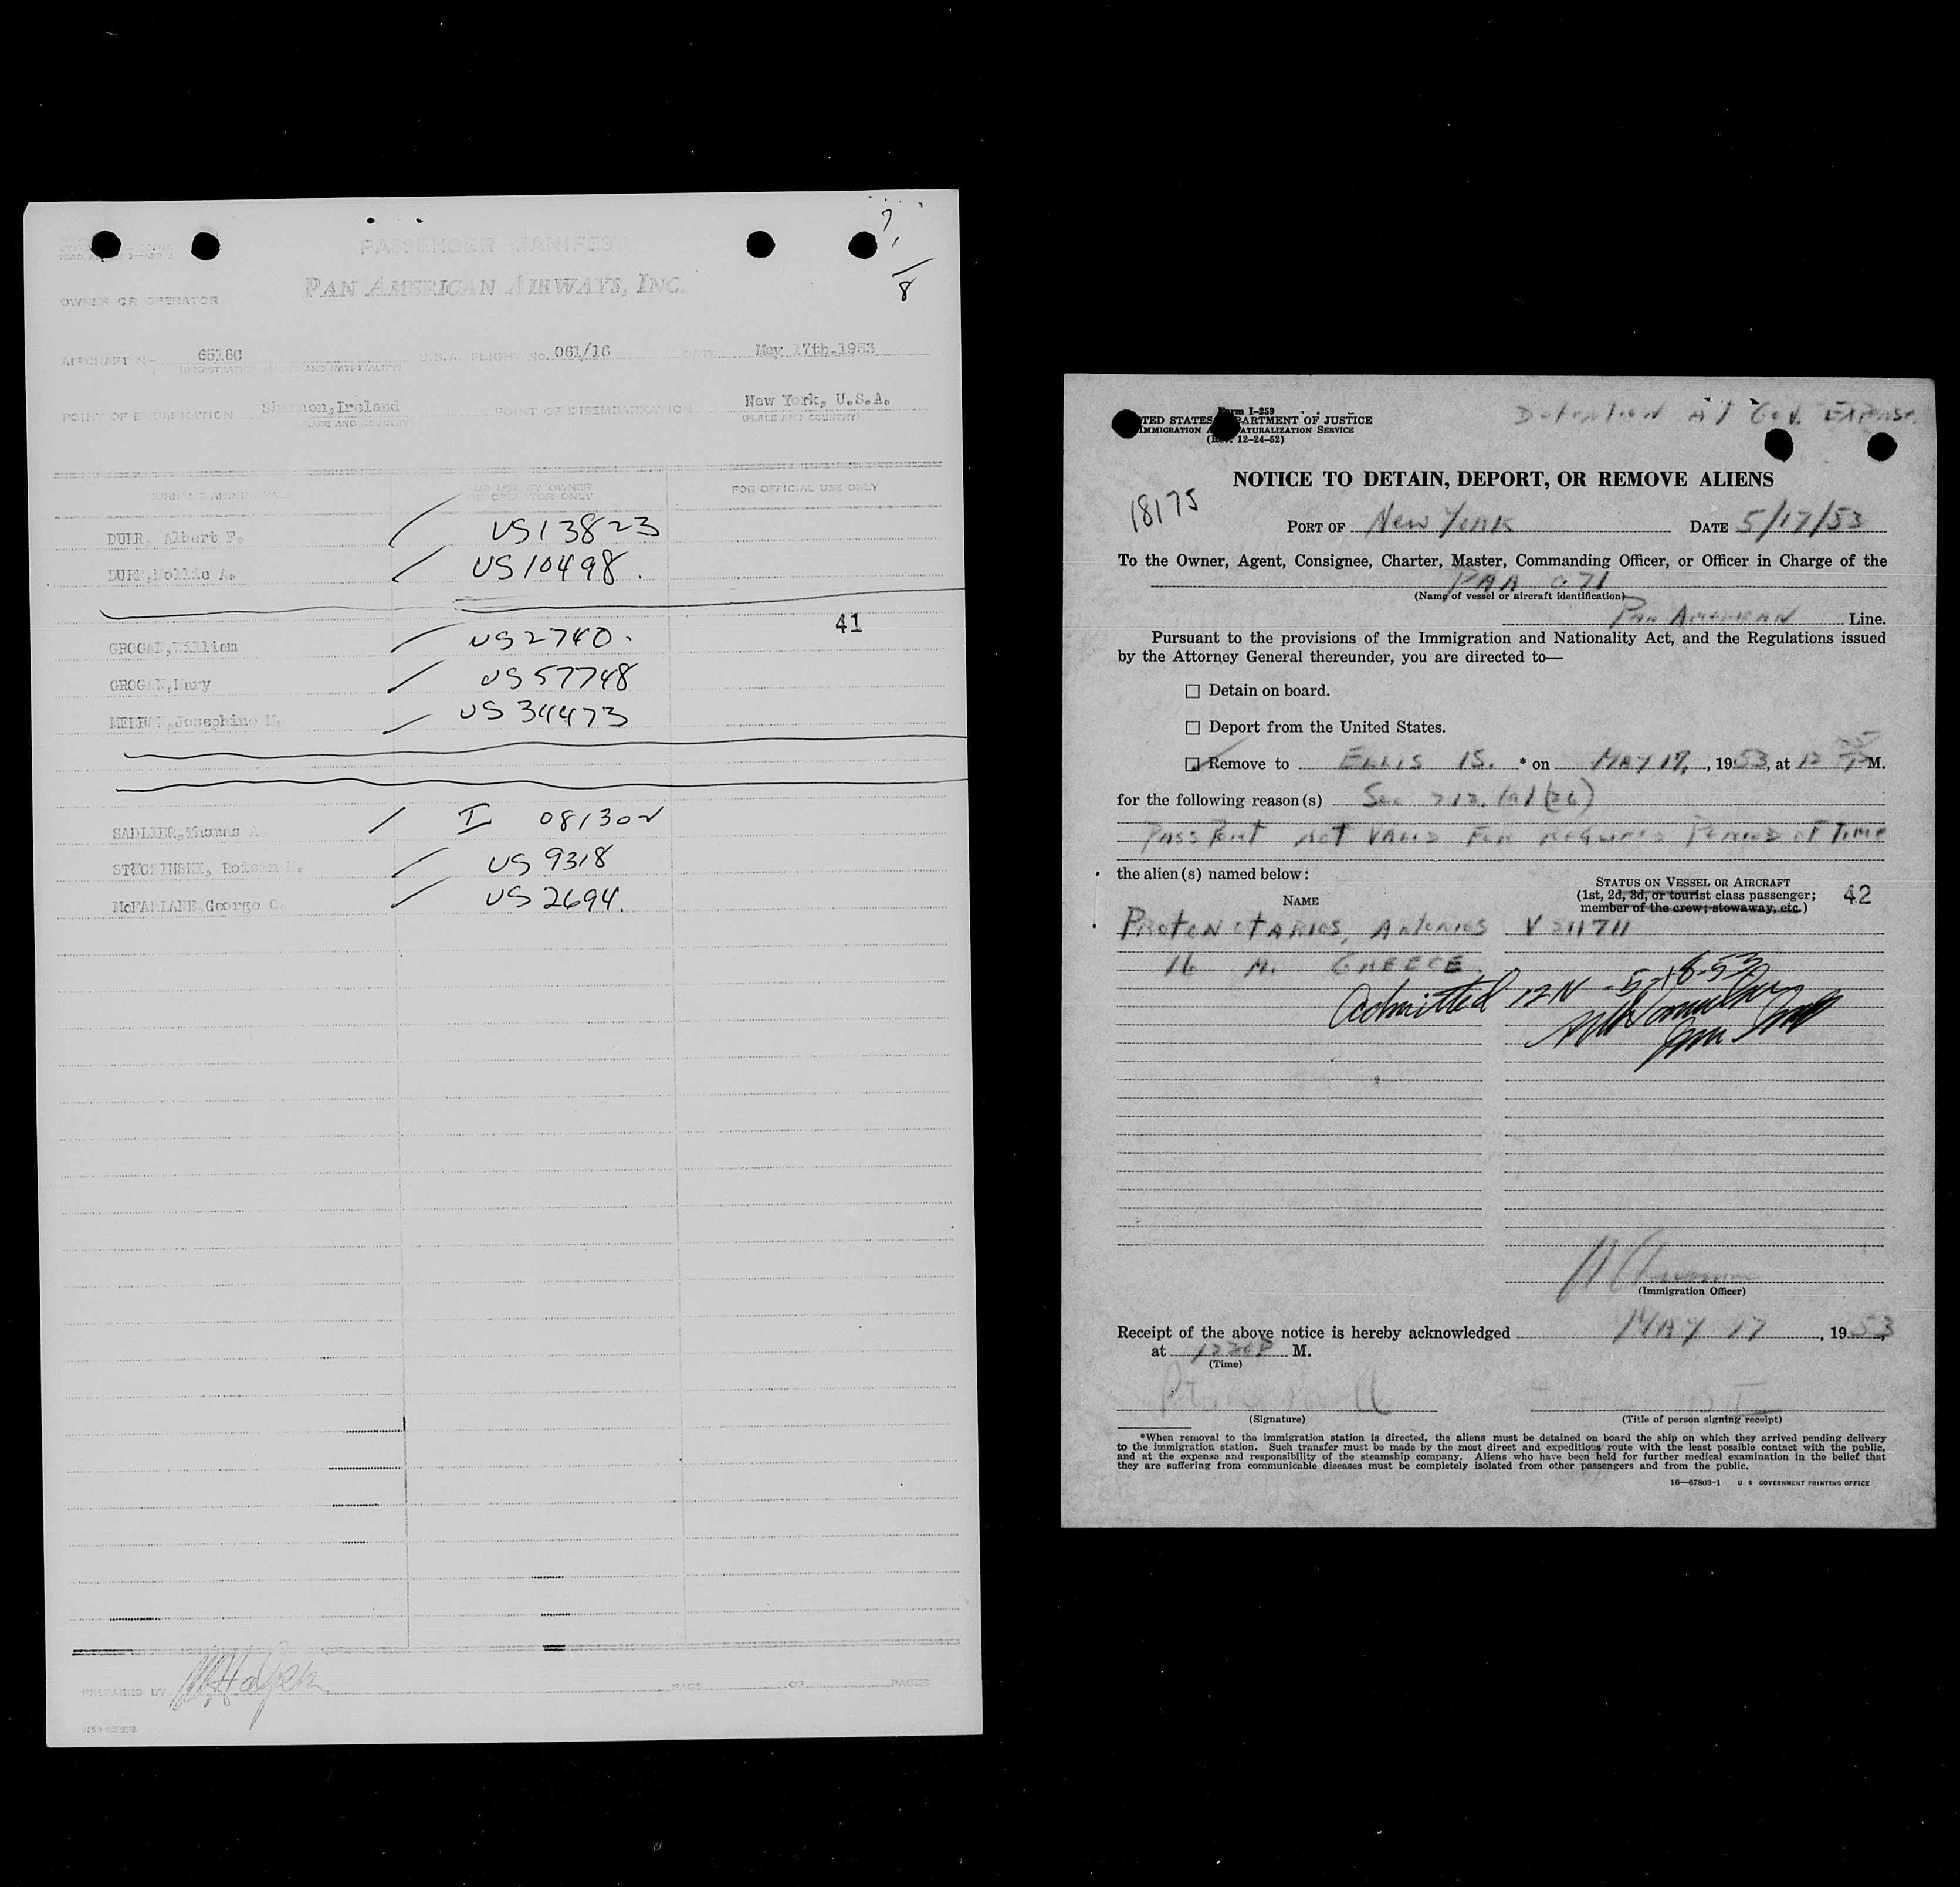 PASSENGER MANIFEST
PAN AMERICAN AIRWAYS, INC.
OWNER OR OPERATOR
AIRCRAFT No 6518C U.S.A. FLIGHT No. 061/16 DATE May 17th.1953
(REGISTRATION MARKS AND NATIONALITY)
POINT OF EMBARKATION Shannon,Ireland POINT OF DISEMBARKATION New York, U.S.A.
(PLACE AND COUNTRY) (PLACE AND COUNTRY)
SURNAME AND INITIALS FOR USE BY OWNER OR OPERATOR ONLY FOR OFFICIAL USE ONLY
DURR, Albert F. US13823
DURR,Mollie A. US10498.
41
GROGAN,William US2740.
GROGAN,Mary US57748
MEEHAN,Josephine M. US 34473
SADLIER,Thomas A. I 081302
Roisin M. US 9318
McFARLANE,George C. US 2694.
PREPARED BY PAGE OF PAGES
Detention at Gov. Expense.
Form I-259
UNITED STATES DEPARTMENT OF JUSTICE
IMMIGRATION AND NATURALIZATION SERVICE
(Rev. 12-24-52)
NOTICE TO DETAIN, DEPORT, OR REMOVE ALIENS
18175
PORT OF New York DATE 5/17/53
To the Owner, Agent, Consignee, Charter, Master, Commanding Officer, or Officer in Charge of the
PAA 071
(Name of vessel or aircraft identification)
Pan American Line.
Pursuant to the provisions of the Immigration and Nationality Act, and the Regulations issued
by the Attorney General thereunder, you are directed to—
☐ Detain on board.
☐ Deport from the United States.
☐ Remove to ELLIS IS. * on MAY 17, , 1953, at 12 M.
for the following reason(s) Sec 212 (a)(26)
PASSPORT NOT VALID FOR REQUIRED PERIOD OF TIME
the alien(s) named below:
NAME
STATUS ON VESSEL OR AIRCRAFT
(1st, 2d, 3d, or tourist class passenger;
member of the crew; stowaway, etc.)
42
PROTONOTARIOS, Antonios V 211711
16 M. GREECE
Admitted 12N -5-18-53
(Immigration Officer)
Receipt of the above notice is hereby acknowledged MAY 17 , 1953,
at 1230P M.
(Time)
(Signature) (Title of person signing receipt)
*When removal to the immigration station is directed, the aliens must be detained on board the ship on which they arrived pending delivery
to the immigration station. Such transfer must be made by the most direct and expeditious route with the least possible contact with the public,
and at the expense and responsibility of the steamship company. Aliens who have been held for further medical examination in the belief that
they are suffering from communicable diseases must be completely isolated from other passengers and from the public.
16—67803-1 U. S. GOVERNMENT PRINTING OFFICE